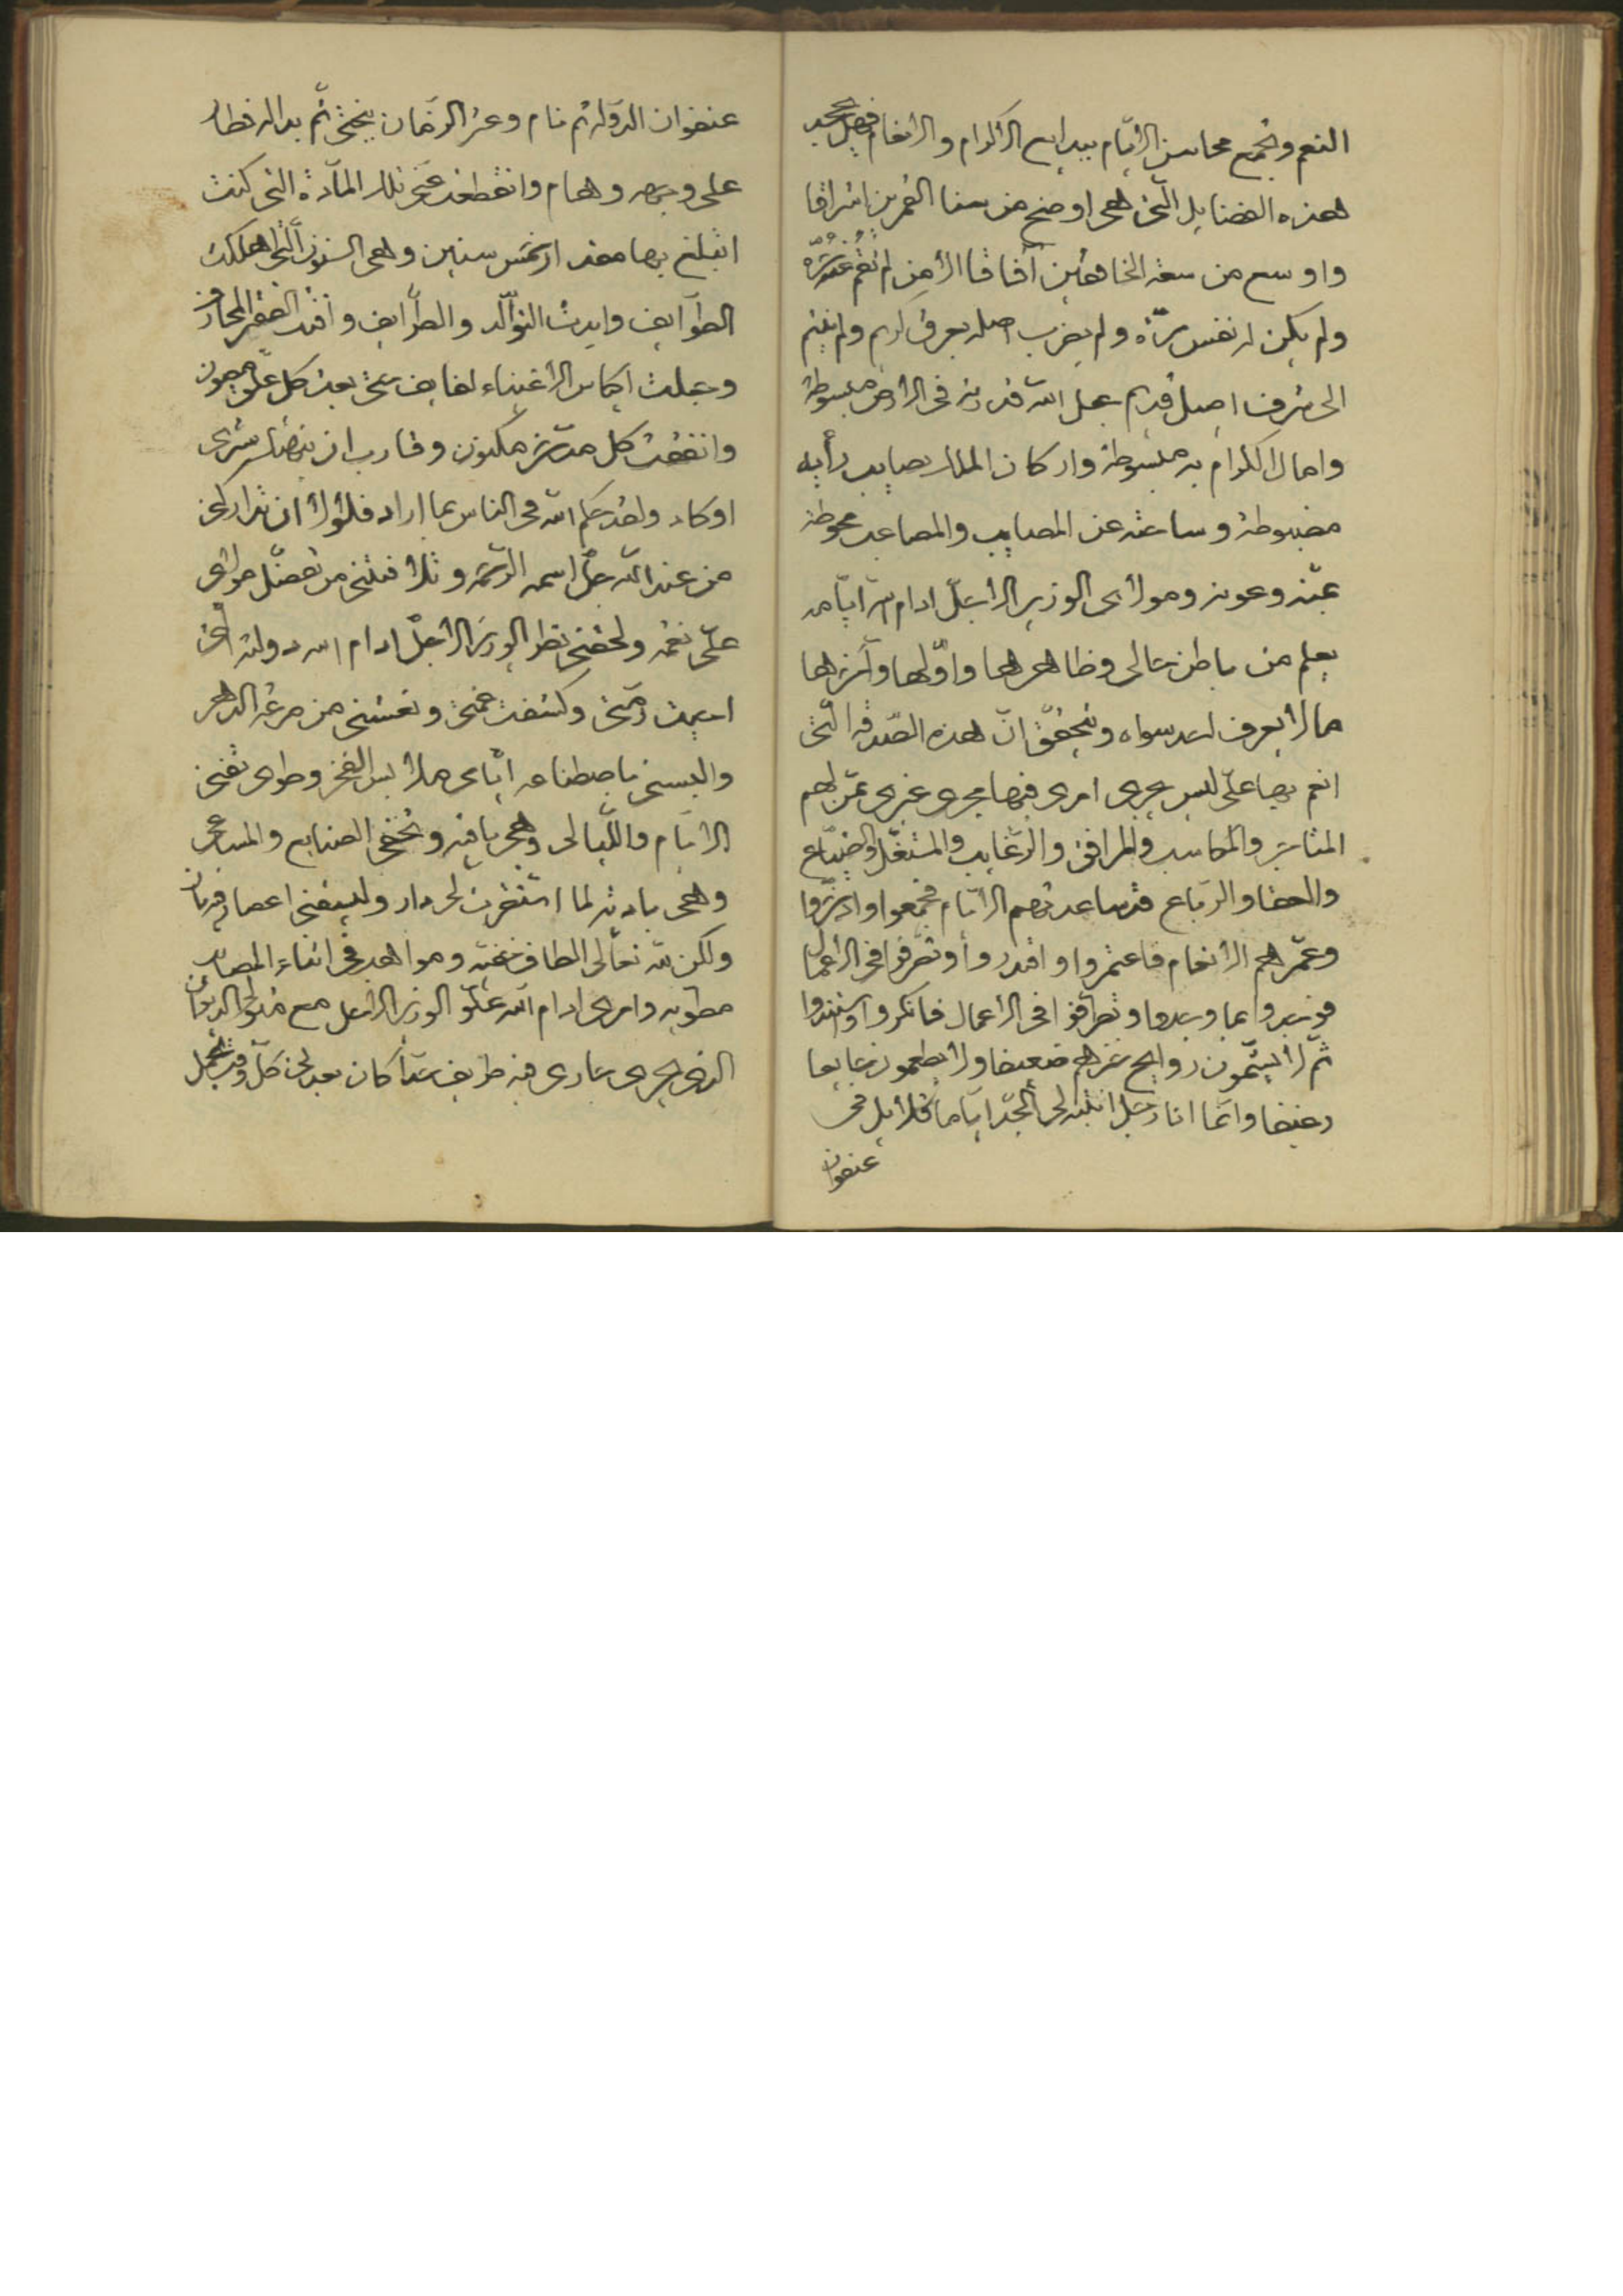 النعم وتجمع محاسن الأيام ببدايع الأكرام والأنعام فهل يجحد
هذه الفضايل التى هى اوضح من سنا القمرين اشراقا
واوسع من سعة الخافقين آفاقا الا من لم تقم
ولم يكن له نفس حرّة ولم يضرب اصله بعرق كريم ولم ينتم
الى شرف اصيل قديم جعل الله قدرته فى الأرض مبسوطة
وامال الكرام به منوطة واركان الملك بصايب رأيه
مضبوطة وساحته عن المصايب والمصاعب محوطة
بمنّه وعونه ومولاى الوزير الاجلّ ادام الله ايّامه
يعلم من باطن حالى وظاهرها واوّلها وآخرها
ما لا يعرف احد سواه ويتحقّق انّ هذه الصّدقة الّتى
انعم بها علىّ ليس يجرى امرى فيها مجرى غيرى ممّن لهم
المتاجر والمكاسب والمرافق والرّغايب والمستغلّ والضياع
والعقار والرّباع قد ساعدتهم الايّام فجمعوا وادّخروا
وغمرهم الانعام فاعتمروا واقتدروا وتصرّفوا فى الاعمال
فوجدوا بما وجدوا وتصرّفوا فى الاعمال فانكروا
ثمّ لا يشمّون روايح خيرهم ضعيفا ولا يطعمون جايعا
رغيفا وانّما انا رجل انتبه لى الجدّ ايّاما قلايل فى
عنفوان
عنفوان الدّولة ثم نام وعزّ الزمان بختى ثم بدا له فطار
على وجهه وهام وانقطعت عنّى تلك المادّة التى كنت
اتبلّغ بها منذ خمس سنين وهى السنون الّتى اهلكت
الطوايف وابدت التّوالد والطّرايف وافنت الفقير المحارف
وجعلت اكياس الاغنياء لفايف حتى بعت كل علق مصون
وانفقت كل مدّخر مكنون وقارب ان ينهتك سترى
اوكاد ولقد حكم الله فى الناس بما اراد فلولا ان تداركنى
من عند الله جلّ اسمه الرّحمة وتلافتنى من تفضّل مولاى
علىّ نعمه ولحقنى نظر الوزير الاجلّ ادام الله دولته
احيت رمّتى وكشفت غمّتى ونعشنى من صرعة الدهر
والبسنى باصطناعه ايّاى ملابس الفخر وطوى تفنى
الايّام واللّيالى وهى باقية وتخفى الصنايع والمساعى
وهى بادية لما استقرّت لى دار
ولكن لله تعالى الطاف خفيّه ومواهبه فى اثناء المصايب
مطويه وامرى ادام الله علوّ الوزير الاجل مع متولى الديوان
الذى يجرى جارى فيه طريف جدّا كان يعدلى كلّ وقت بجميل